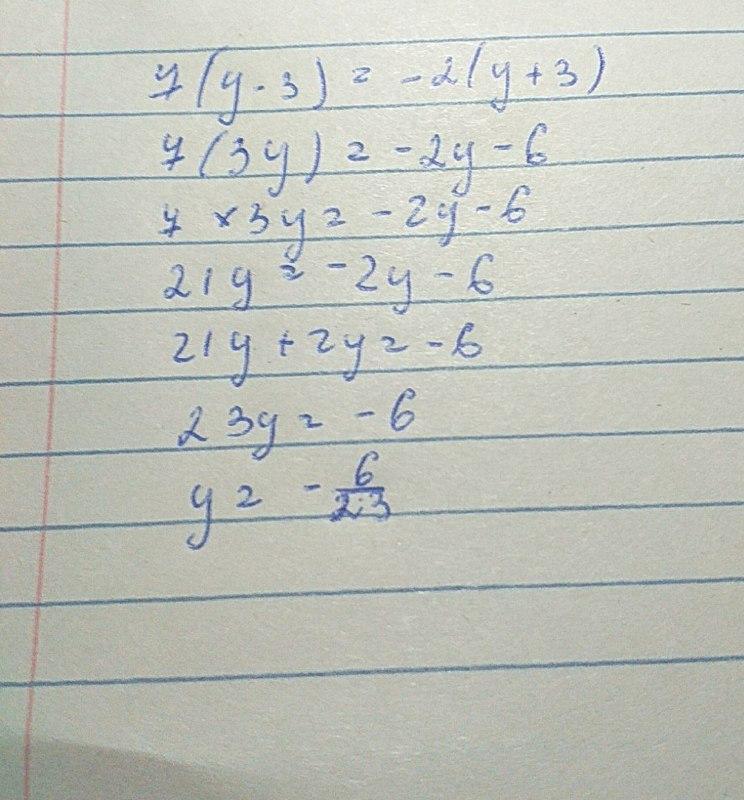 7(y·3) = -2(y+3)
7(3y) = -2y-6
7×3y = -2y-6
21y = -2y-6
21y+2y = -6
23y = -6
y = -6/23